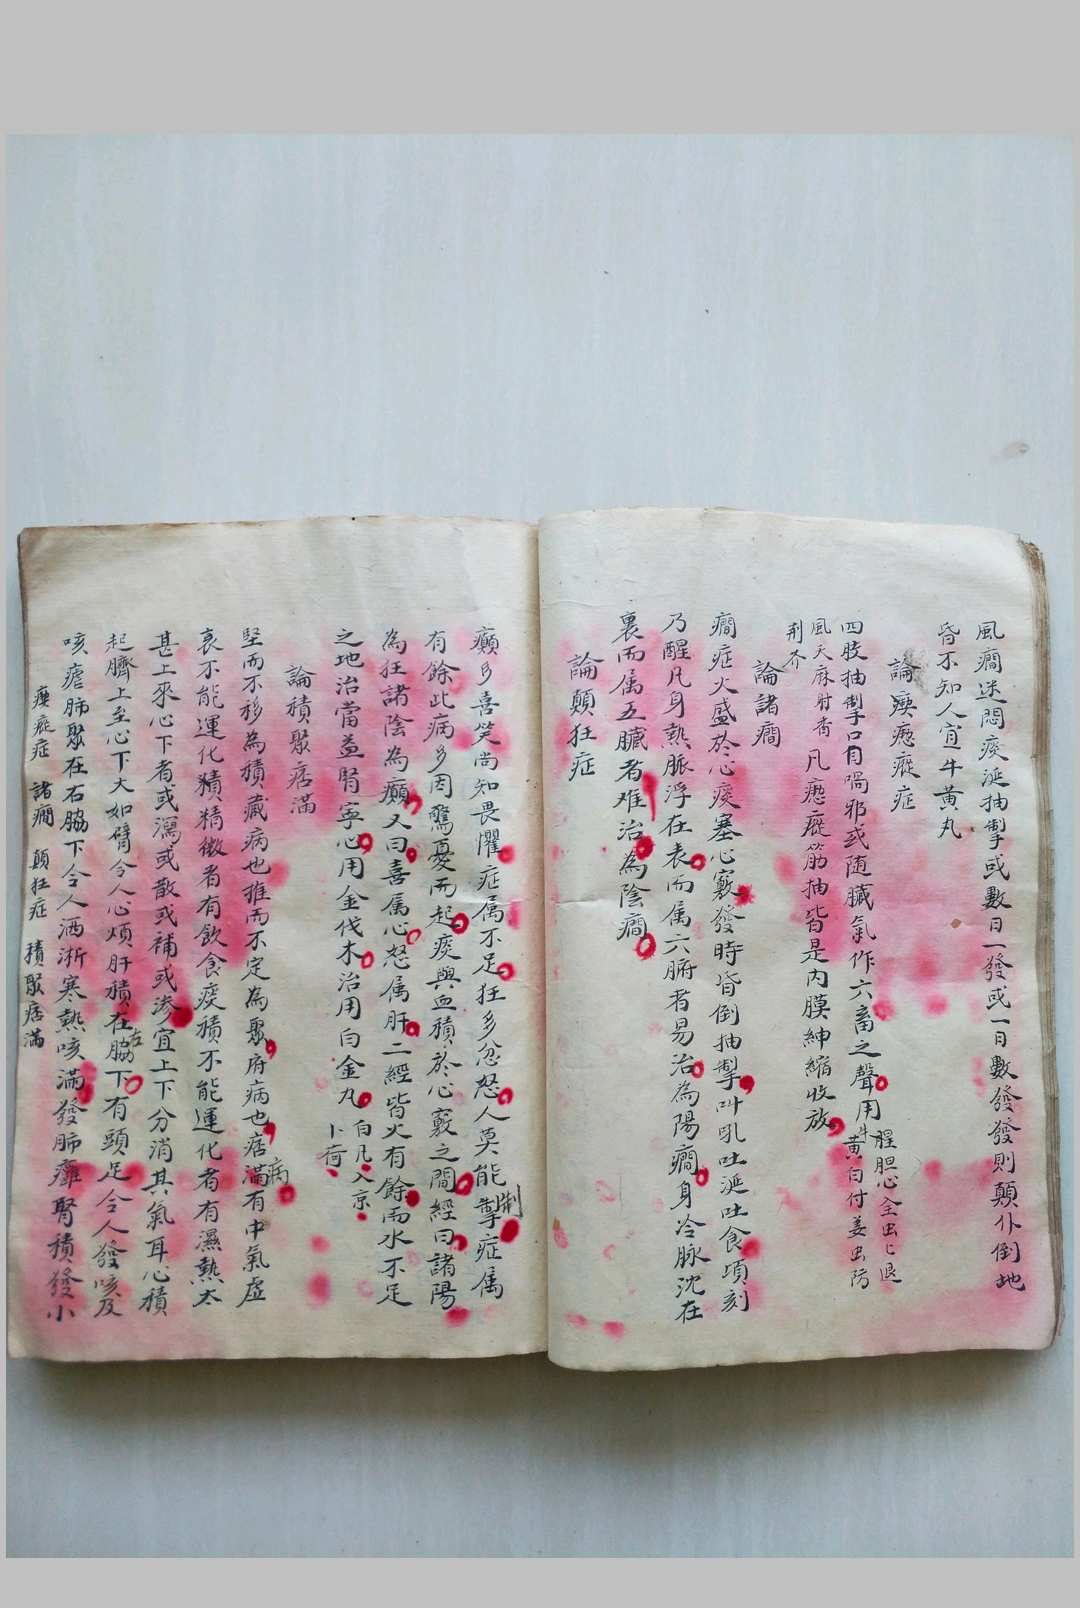 風癎迷悶痰涎抽掣或數日一發或一日數發發則顛仆倒地
昏不知人宜牛黄丸
論瘈瘲症
四肢抽掣口目喎邪或随臟氣作六畜之聲用
牛黄白付姜虫防
腥胆心全虫亡退
風天麻射香
凡瘛瘲筋抽皆是内膜紳縮收放
荆芥
論諸癎
癎症火盛於心痰塞心竅發時昏倒抽掣叫吼吐涎吐食頃刻
乃醒凡身熱脈浮在表而属六腑者易治為陽癎身冷脉沈在
裏而属五臟者难治為陰癎
論顛狂症
癲多喜笑尚知畏懼症属不足狂多忿怒人莫能制掣症属
有餘此病多因驚憂而起痰與血積於心竅之間經曰諸陽
為狂諸陰為癲又曰喜属心怒属肝二經皆火有餘而水不足
之地治當益腎寧心用金伐木治用白金丸
白凡入京
卜荷
論積聚痞滿
堅而不移為積藏病也推而不定為聚府病也痞滿病有中氣虚
衰不能運化積精微者有飲食痰積不能運化者有濕熱太
甚上來心下者或瀉或散或補或渗宜上下分消其氣耳心積
起臍上至心下大如臂令人心煩肝積在左脇下有頭足令人發咳及
咳瘧肺聚在右脇下令人洒淅寒熱咳滿發肺癰腎積發小
瘈瘲症 諸癎 顛狂症 積聚痞滿